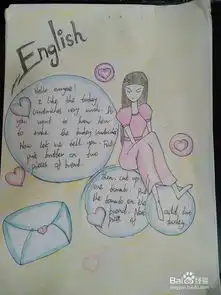 English
Hello everyone!
I like the turkey
sandwiches very much. Do
you want to know how
to make the turkey sandwiches
Now let me tell you. First
put butter on two
pieces of bread
then, cut up
one tomato. Put
the tomato on the
bread. Next
piece of
add two
turkey
Bai 百度经验
jingyan.baidu.com